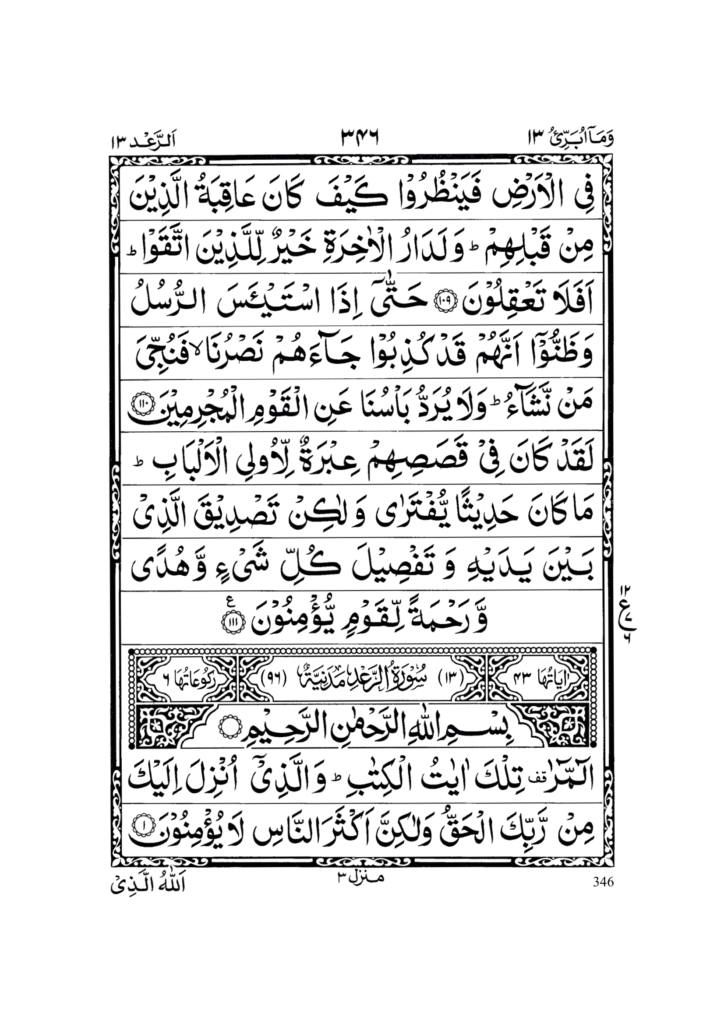 وَمَاۤ اُبَرِّئُ ١٣ ٣٤٦ اَلرَّعْد ١٣
فِی الْاَرْضِ فَیَنْظُرُوْا كَیْفَ كَانَ عَاقِبَةُ الَّذِیْنَ
مِنْ قَبْلِهِمْ ؕ وَلَدَارُ الْاٰخِرَةِ خَیْرٌ لِّلَّذِیْنَ اتَّقَوْا ؕ
اَفَلَا تَعْقِلُوْنَ ﴿١٠٩﴾ حَتّٰۤی اِذَا اسْتَیْـَٔسَ الرُّسُلُ
وَظَنُّوْۤا اَنَّهُمْ قَدْ كُذِبُوْا جَآءَهُمْ نَصْرُنَا ۙ فَنُجِّیَ
مَنْ نَّشَآءُ ؕ وَلَا یُرَدُّ بَاْسُنَا عَنِ الْقَوْمِ الْمُجْرِمِیْنَ ﴿١١٠﴾
لَقَدْ كَانَ فِیْ قَصَصِهِمْ عِبْرَةٌ لِّاُولِی الْاَلْبَابِ ؕ
مَا كَانَ حَدِیْثًا یُّفْتَرٰی وَلٰكِنْ تَصْدِیْقَ الَّذِیْ
بَیْنَ یَدَیْهِ وَ تَفْصِیْلَ كُلِّ شَیْءٍ وَّ هُدًی
وَّ رَحْمَةً لِّقَوْمٍ یُّؤْمِنُوْنَ ﴿١١١﴾ ع
١٢
ع
٧
٦
اٰیَاتُهَا ٤٣ (١٣) سُوْرَةُ الرَّعْدِ مَدَنِیَّةٌ (٩٦) رُكُوْعَاتُهَا ٦
بِسْمِ اللّٰهِ الرَّحْمٰنِ الرَّحِیْمِ
الٓمّٓرٰ قف تِلْكَ اٰیٰتُ الْكِتٰبِ ؕ وَالَّذِیْۤ اُنْزِلَ اِلَیْكَ
مِنْ رَّبِّكَ الْحَقُّ وَلٰكِنَّ اَكْثَرَ النَّاسِ لَا یُؤْمِنُوْنَ ﴿١﴾
346 منزل ٣ اَللّٰهُ الَّذِیْ